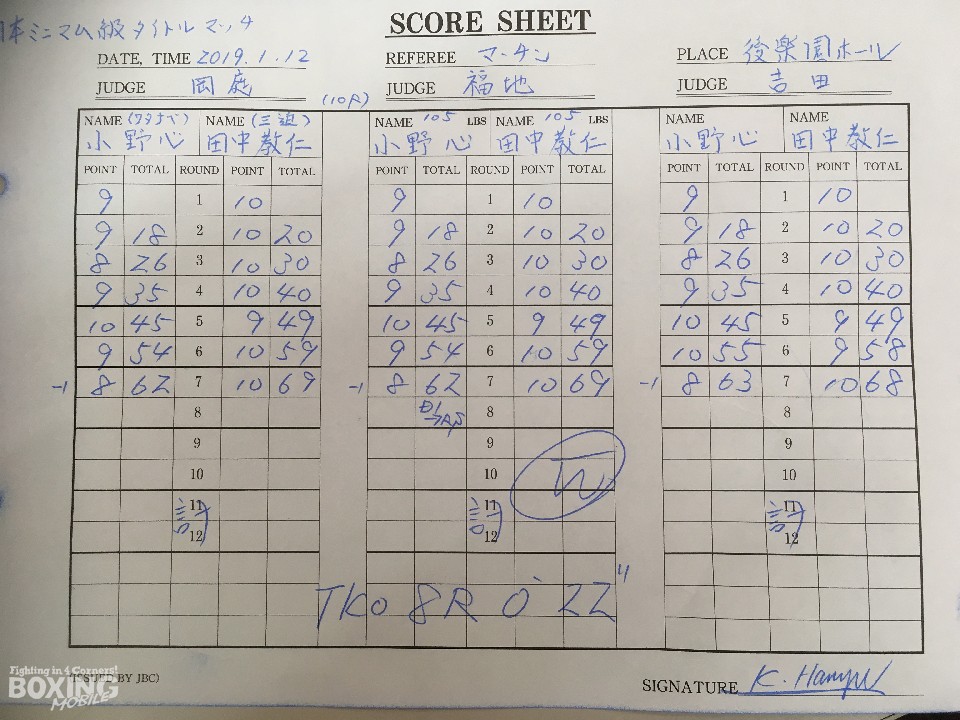 日本ミニマム級タイトルマッチ
SCORE SHEET
DATE, TIME 2019.1.12 REFEREE マーチン PLACE 後楽園ホール
JUDGE 岡庭 (10R) JUDGE 福地 JUDGE 吉田
NAME (ワタナベ) NAME (三迫) NAME 105 LBS NAME 105 LBS NAME NAME
小野心 田中教仁 小野心 田中教仁 小野心 田中教仁
POINT TOTAL ROUND POINT TOTAL POINT TOTAL ROUND POINT TOTAL POINT TOTAL ROUND POINT TOTAL
9 1 10 9 1 10 9 1 10
9 18 2 10 20 9 18 2 10 20 9 18 2 10 20
8 26 3 10 30 8 26 3 10 30 8 26 3 10 30
9 35 4 10 40 9 35 4 10 40 9 35 4 10 40
10 45 5 9 49 10 45 5 9 49 10 45 5 9 49
9 54 6 10 59 9 54 6 10 59 10 55 6 9 58
-1 8 62 7 10 69 -1 8 62 7 10 69 -1 8 63 7 10 68
8 8 8
9 9 9
10 10 W 10
11 11 11
計 計 計
12 12 12
TKO 8R 0' 22"
Fighting in 4 Corners!
BOXING
MOBILE
ISSUED BY JBC)
SIGNATURE K. Hanyu